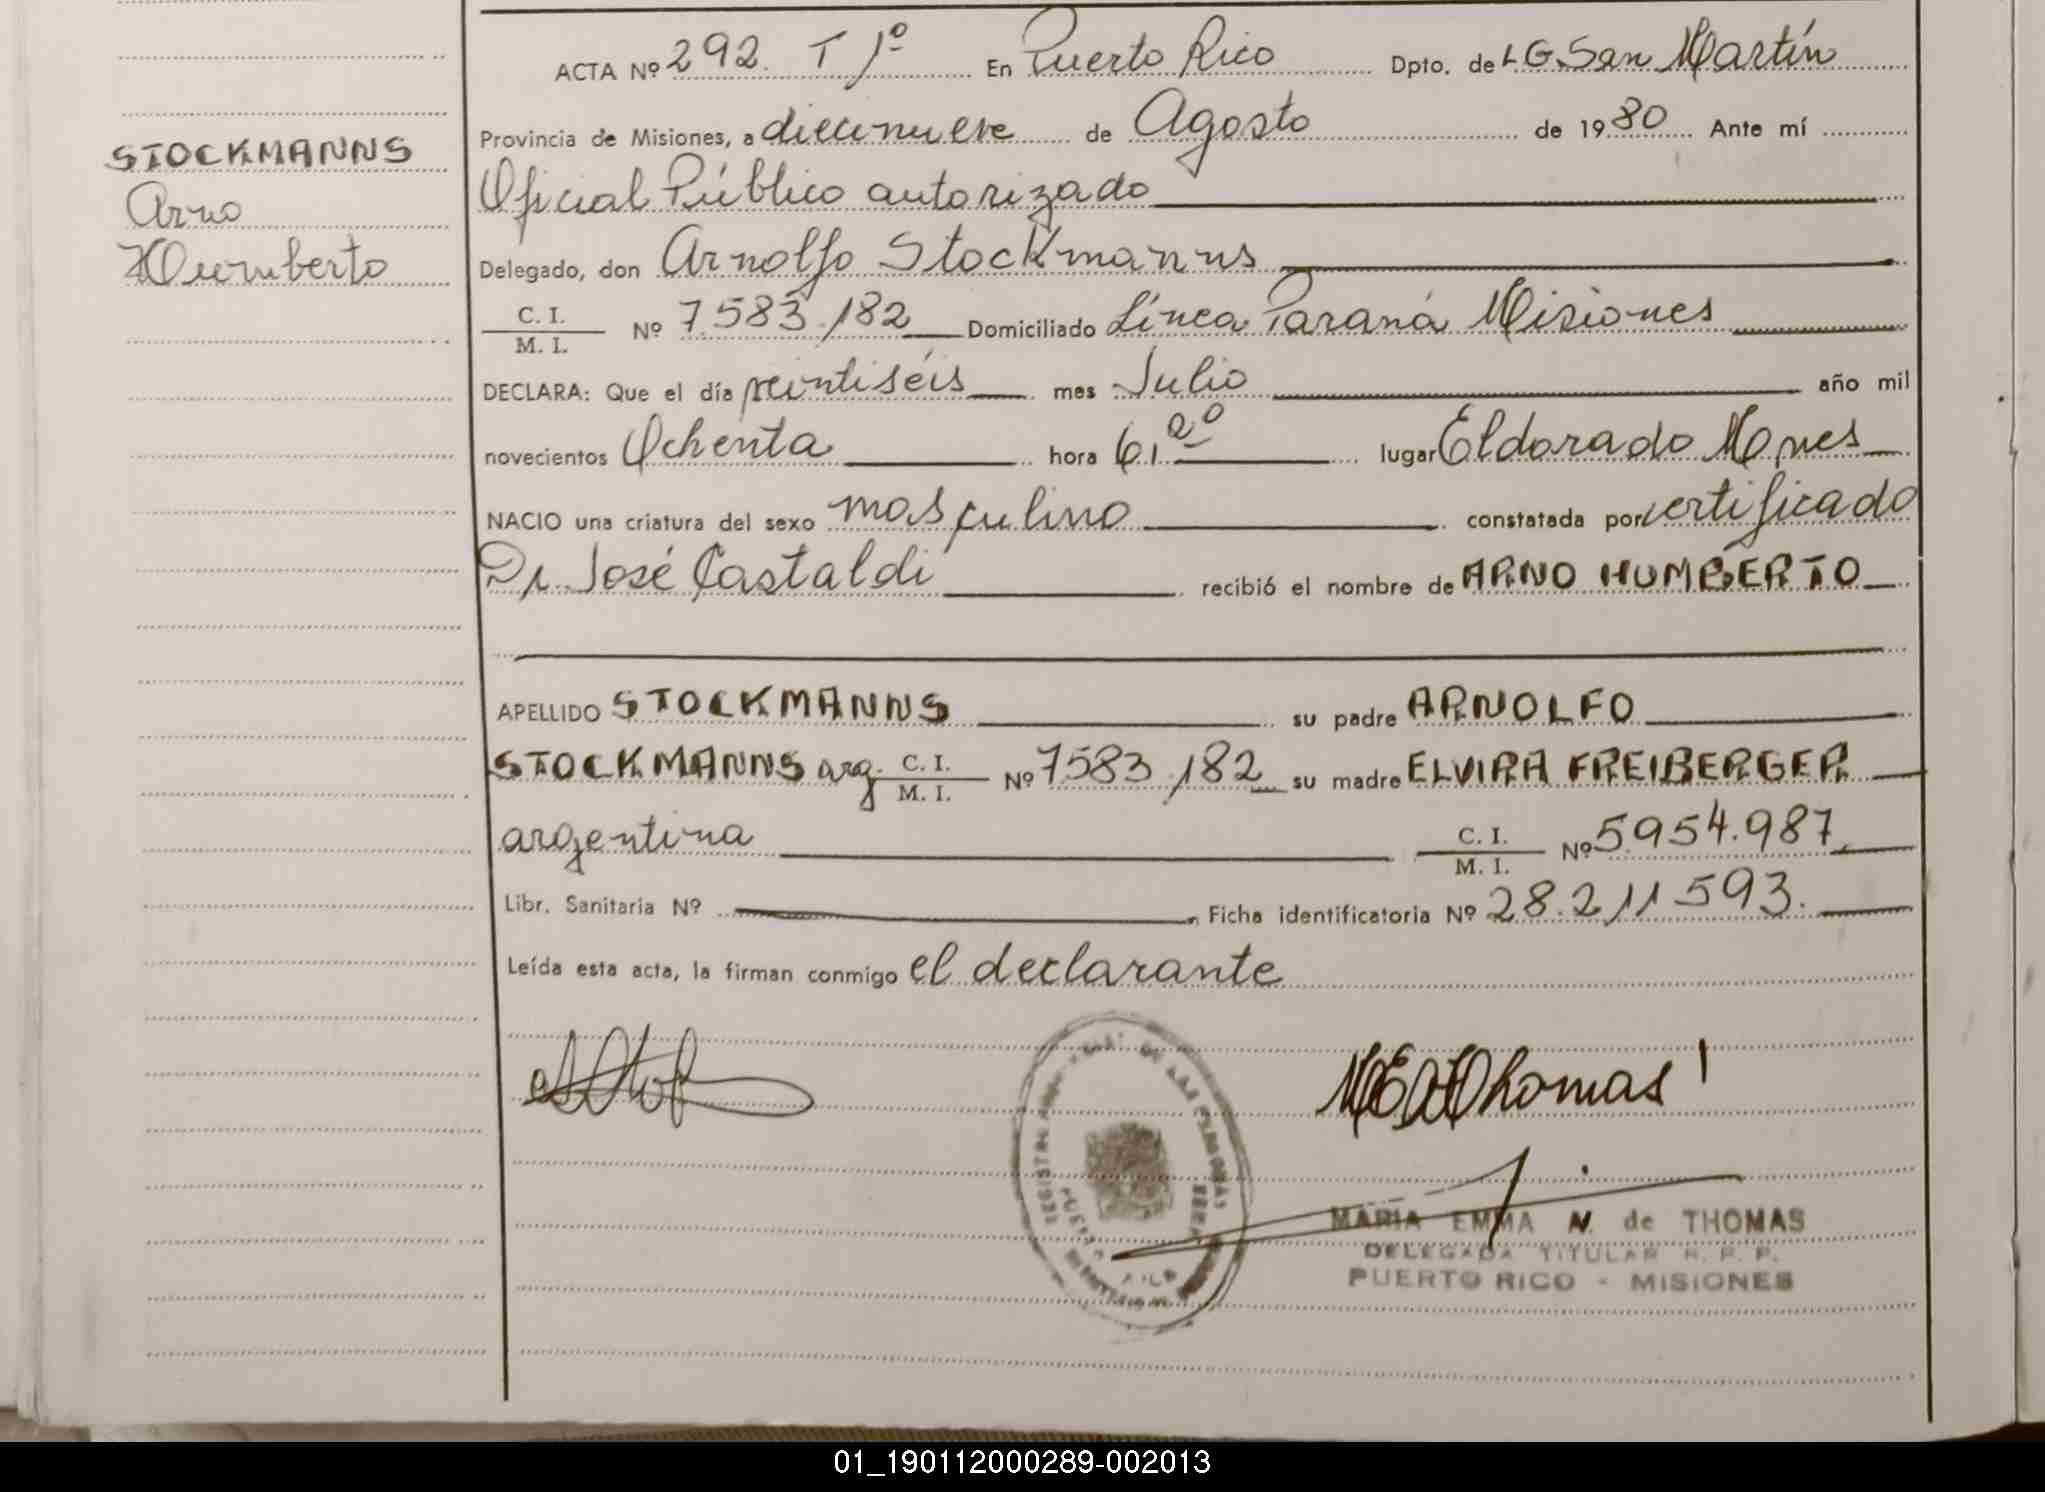 STOCKMANNS
Arno
Humberto
ACTA Nº 292. T 1º En Puerto Rico Dpto. de L G. San Martín
Provincia de Misiones, a diecinueve de Agosto de 1980 Ante mí
Oficial Público autorizado
Delegado, don Arnolfo Stockmanns
C. I.
M. I. Nº 7.583.182 Domiciliado Línea Paraná Misiones
DECLARA: Que el día veintiséis mes Julio año mil
novecientos Ochenta hora 6,20 lugar Eldorado Mnes
NACIO una criatura del sexo masculino constatada por certificado
Dr. José Castaldi recibió el nombre de ARNO HUMBERTO
APELLIDO STOCKMANNS su padre ARNOLFO
STOCKMANNS arg. C. I. M. I. Nº 7583.182 su madre ELVIRA FREIBERGER
argentina C. I. M. I. Nº 5.954.987
Libr. Sanitaria Nº Ficha identificatoria Nº 28.211.593.
Leída esta acta, la firman conmigo el declarante
MARIA EMMA N. de THOMAS
DELEGADA TITULAR R. P. P.
PUERTO RICO - MISIONES
01_190112000289-002013